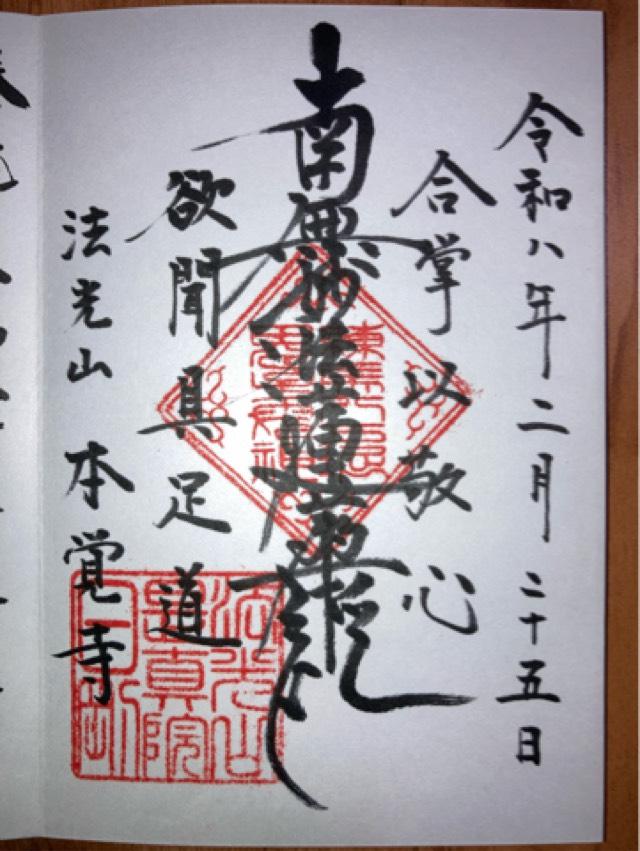 令和八年二月二十五日
合掌以敬心
南無妙法蓮華経
欲聞具足道
法光山 本覚寺